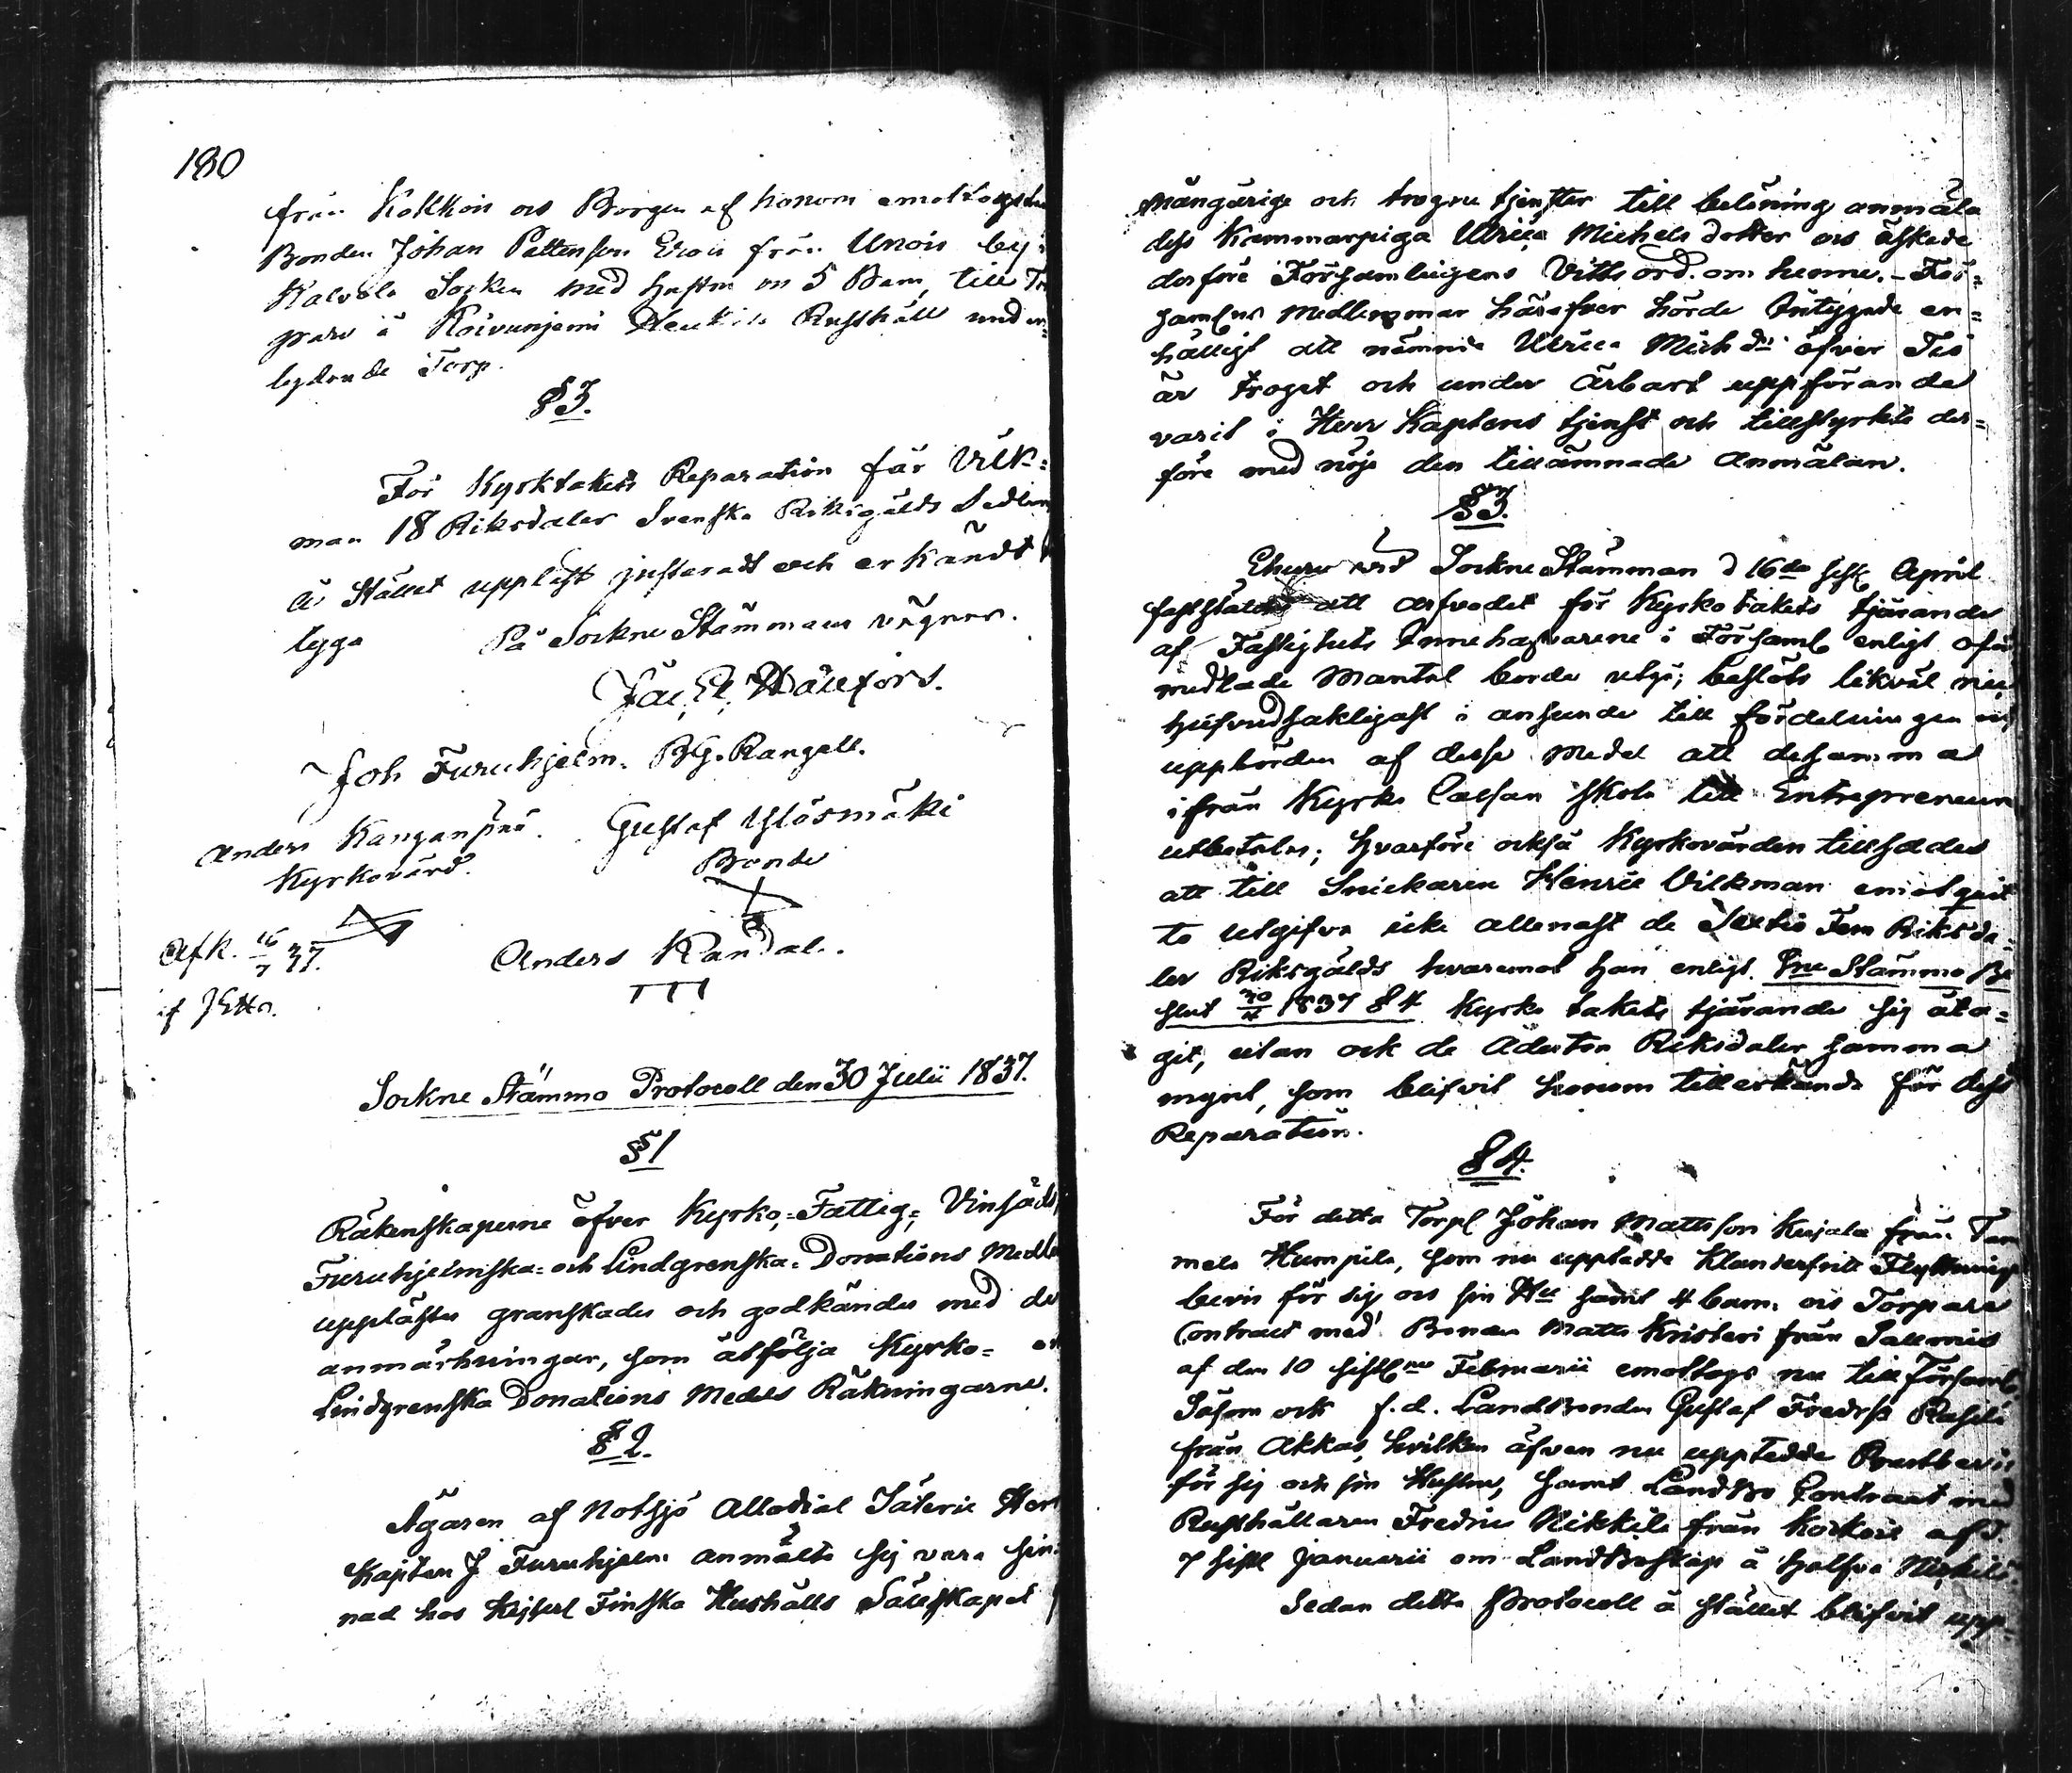 180
från Kokkois och Borgen af honom emottogs
Bonden Johan Pettersson Erois från Unois by i
Kalvola Socken med hustru o 5 Barn, till
pare å Koivunjemi Heikkilä Rusthåll under=
lydande Torp.
§ 3.
För Kyrktakets Reparation får Vilk=
man 18 Riksdaler Svenska Riksgälds Sedlar
Å Stället uppläst justeradt och erkändt
tyga På Sockne Stämmans vägnar.
Jac. El. Wallfors.
Joh Furuhjelm. BG. Rangell.
Anders Kanganpää. Gustaf Yliösmäki
Kyrkovärd. Bonde
Afk. 16/7 37. Anders Randal.
af JEtto.
Sockne Stämmo Protocoll den 30 Julii 1837.
§ 1
Räkenskaperne öfver Kyrko,= Fattig=, Vinsäds
Furuhjelmska= och Lindgrenska= Donations Medle
upplästes granskades och godkändes med de
anmärkningar, som åtfölja Kyrko=
Lindgrenska Donations Medels Räkningarne.
§ 2.
Ägaren af Notsjö Allodial Säterie Herr
Kapiten J Furuhjelm anmälte sig vara sin=
nad hos Kejserl Finska Hushålls Sällskapet
mångårige och trogne tjenster till belöning anmäla
dess Kammarpiga Ulrica Michelsdotter och äskade
derföre Församlingens Vittsord om henne. - För=
saml:ns Medlemmar häröfver hörde intygade en=
hälligt att nämnde Ulrica Mich dr öfver Tio
år troget och under ärbart uppförande
varit i Herr Kaptens tjenst och tillstyrkte der=
före med nöje den tillämnade anmälan.
§ 3.
Ehuru vid Sockne Stämman d 16de sistl April
fastställdes att arfvodet för Kyrko takets tjärande
af Fastighets Innehafvarene i Församl enligt
medlade Mantal borde utgå; beslöts likväl nu
hufvudsakligast i anseende till fördelningen
uppbörden af desse medel att desamma
ifrån Kyrko Cassan skola till Entrepreneur
utbetalas; hvarföre också Kyrkovärden tillsades
att till Snickaren Henric Vilkman emot qvit
to utgifva icke allenast de Sextio Fem Riksda=
ler Riksgälds hvaremot han enligt Sne Stämmo Be
slut 30/4 1837 § 4 Kyrko takets tjärande sig åta=
git, utan ock de Aderton Riksdaler samma
mynt, som blifvit honom tillerkände för dess
Reparation.
§ 4.
För detta Torpl Johan Mattsson Kujala från Tam
mela Humpila, som nu uppteddе klanderfritt Flyttnings
bevis för sig och sin Hu samt 4 barn och Torpare
Contract med Bonden Matts Kristeri från Sallmis
af den 10 sistl:ne Februarii emottogs nu till Församl.
Såsom ock f.d. Landbonden Gustaf Fredrss
från Akkas, hvilken äfven nu uppteddе Prestbevis
för sig och sin Hustru, samt Landbo Contract med
Rusthållaren Fredric Nikkilä från Koikois af d.
7 sistl Januarii om Landboskap å halfva Nikkilä.
Sedan detta Protocoll å stället blifvit upp=